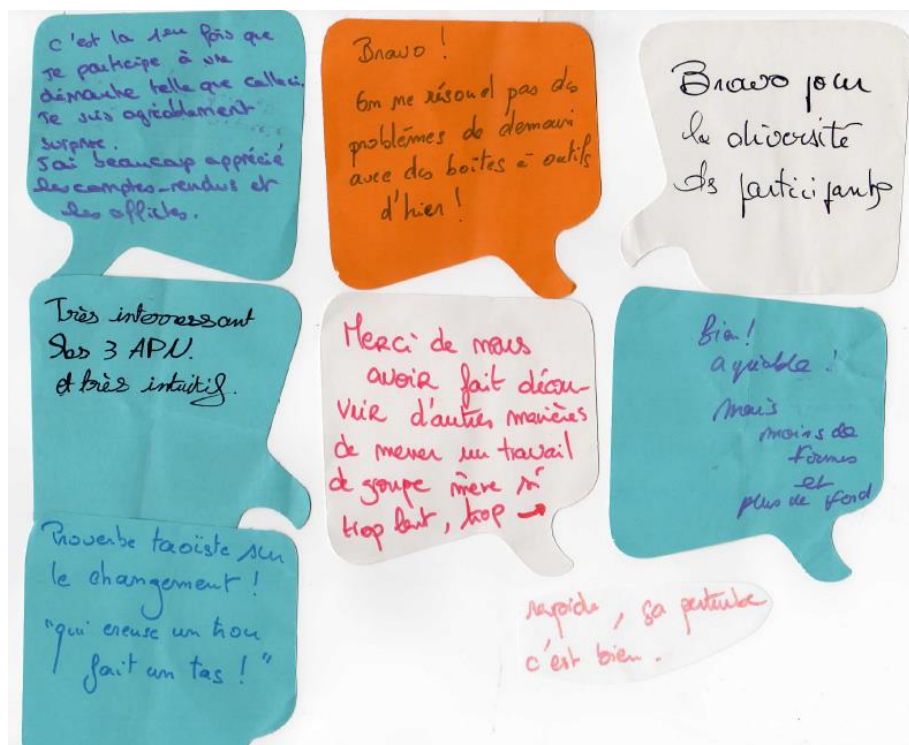 C'est la 1eu fois que
je participe à une
démarche telle que celleci.
Je suis agréablement
surprise.
J'ai beaucoup apprécié
les comptes-rendus et
les affiches.
Bravo !
On ne résoud pas des
problèmes de demain
avec des boîtes à outils
d'hier !
Bravo pour
la diversité
des participants
Très interressant
Les 3 APN.
et très intuitif.
Merci de nous
avoir fait décou-
vrir d'autres manières
de mener un travail
de groupe même si
trop lent, trop →
rapide, ça perturbe
c'est bien.
Bien !
agréable !
mais
moins de
formes
et
plus de fond
Proverbe taoïste sur
le changement !
"qui creuse un trou
fait un tas ! "